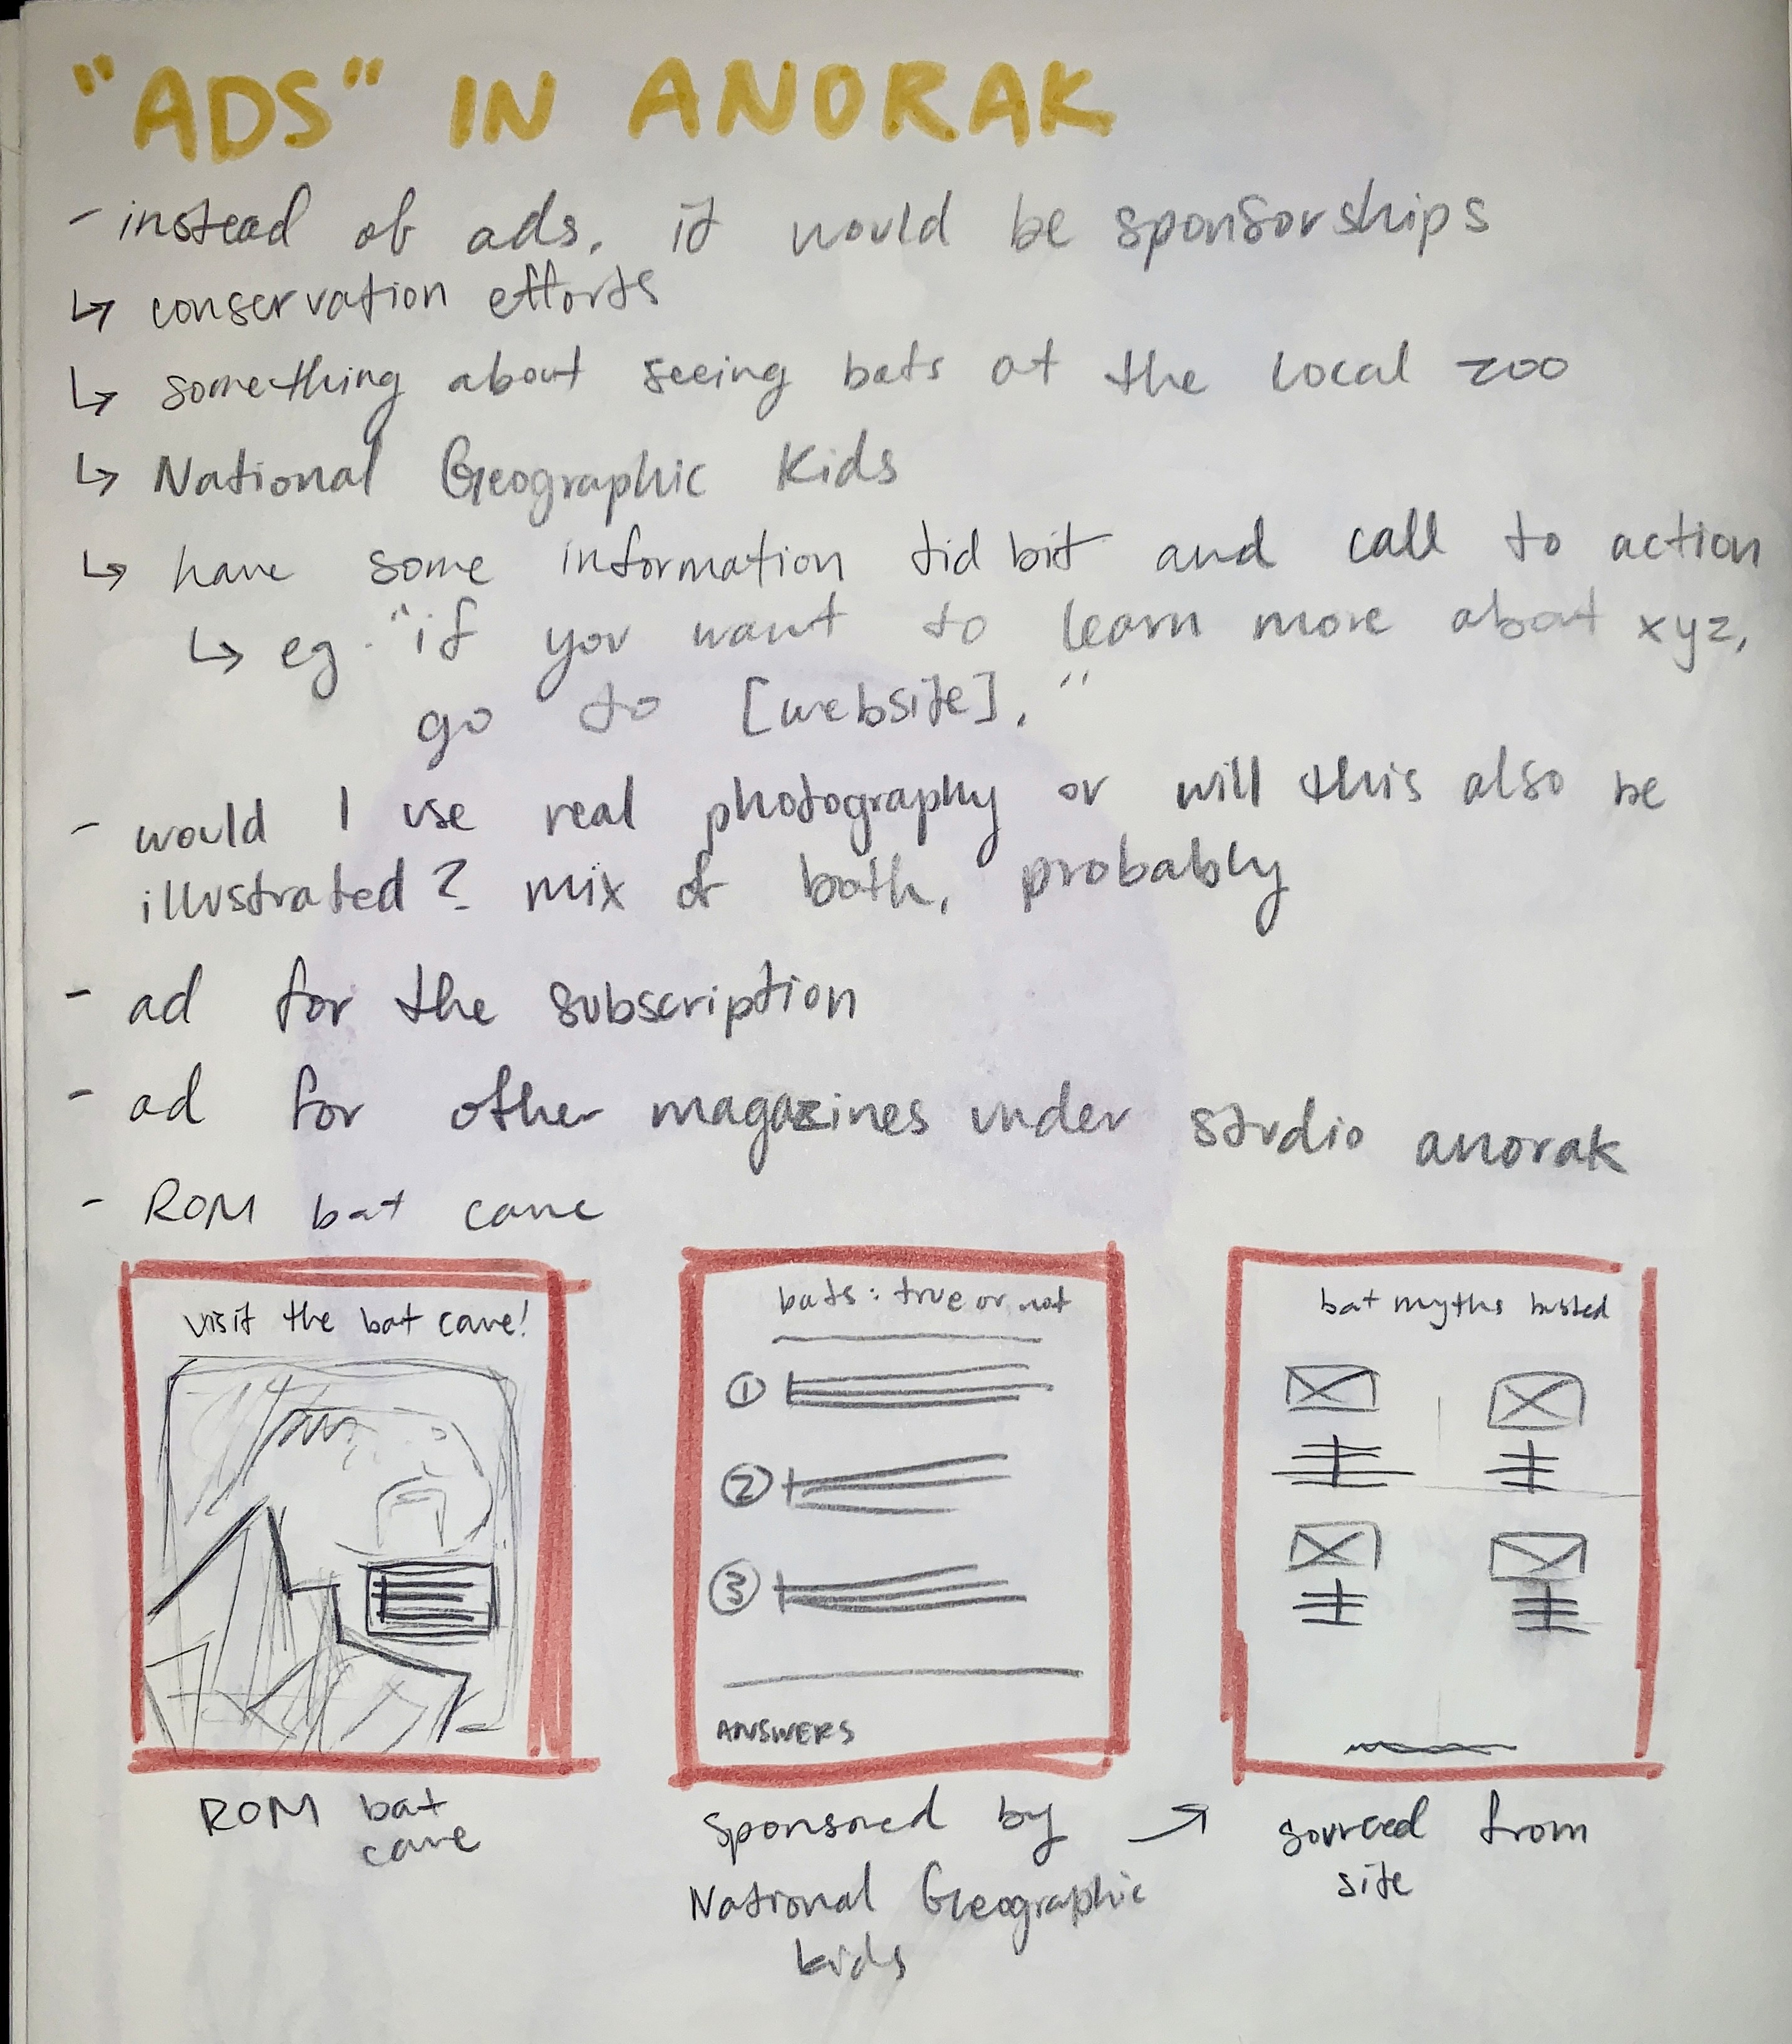 "ADS" IN ANORAK
- instead of ads, it would be sponsorships
↳ conservation efforts
↳ something about seeing bats at the local zoo
↳ National Geographic Kids
↳ have some information tid bit and call to action
↳ eg. "if you want to learn more about xyz,
go to [website]."
- would I use real photography or will this also be
illustrated? mix of both, probably
- ad for the subscription
- ad for other magazines under studio anorak
- ROM bat cave
visit the bat cave!
bats: true or not
①
②
③
ANSWERS
bat myths busted
ROM bat
cave
Sponsored by
National Geographic
kids
→ sourced from
site